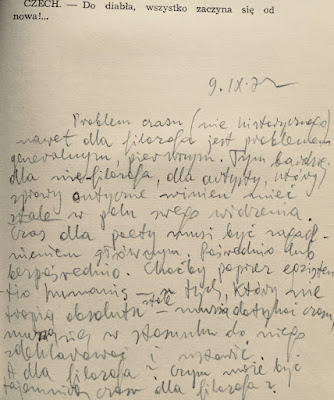 CZECH. — Do diabła, wszystko zaczyna się od
nowa!...
9.IX.72
Problem czasu (nie historycznego)
nawet dla filozofa jest problemem
generalnym, pierwszym. Tym bardziej
dla nie-filozofa, dla artysty, który
sprawy ontyczne winien mieć
stale w polu swego widzenia.
Czas dla poety musi być zagad-
nieniem głównym, pośrednio lub
bezpośrednio. Choćby poprzez
humanis – tych, którzy nie
stale
tropią absolutu – muszą dotykać czasu,
muszą się w stosunku do niego
zdeklarować i ustawić.
A dla filozofa? czym może być
tajemnica czasu dla filozofa?